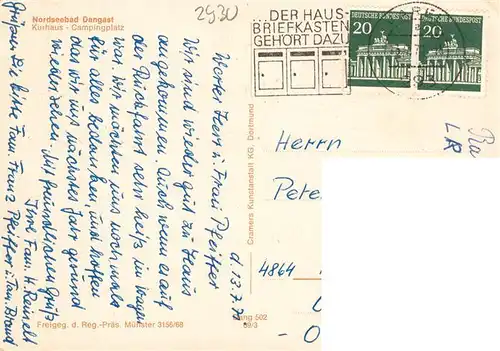 Nordseebad Dangast
Kurhaus - Campingplatz
2930
...DER HAUS-
BRIEFKASTEN
GEHÖRT DAZU
DEUTSCHE BUNDESPOST
20
DEUTSCHE BUNDESPOST
20
d. 13.7.
Werter Herr u. Frau Pfeiffer
Wir sind wieder gut zu Haus
angekommen. Auch wenn es auf
der Rückfahrt sehr heiß im Wagen
war. Wir möchten uns nochmals
für alles bedanken, und hoffen
das wir uns nächstes Jahr gesund
wieder sehen. Mit freundlichen Grüß
Ihre Fam. H.
Grüßen Sie bitte Fam. Franz Pfeiffer u. Fam. Brand
Cramers Kunstanstalt KG, Dortmund
Herrn
Pete
4864
Dang 502
69/3
Freigeg. d. Reg.-Präs. Münster 3156/68